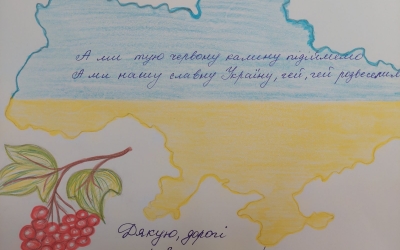 А ми тую червону калину підіймемо
А ми нашу славну Україну, гей, гей розвеселим
Дякую, дорогі